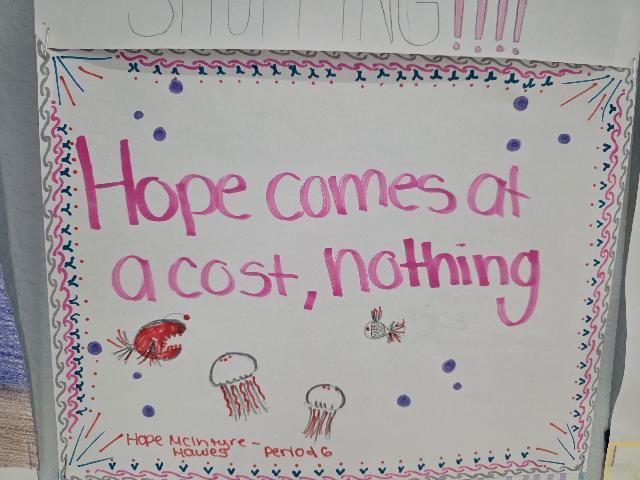 SHOPPING!!!!
Hope comes at
a cost, nothing
Hope McIntyre-
Hawes
Period 6